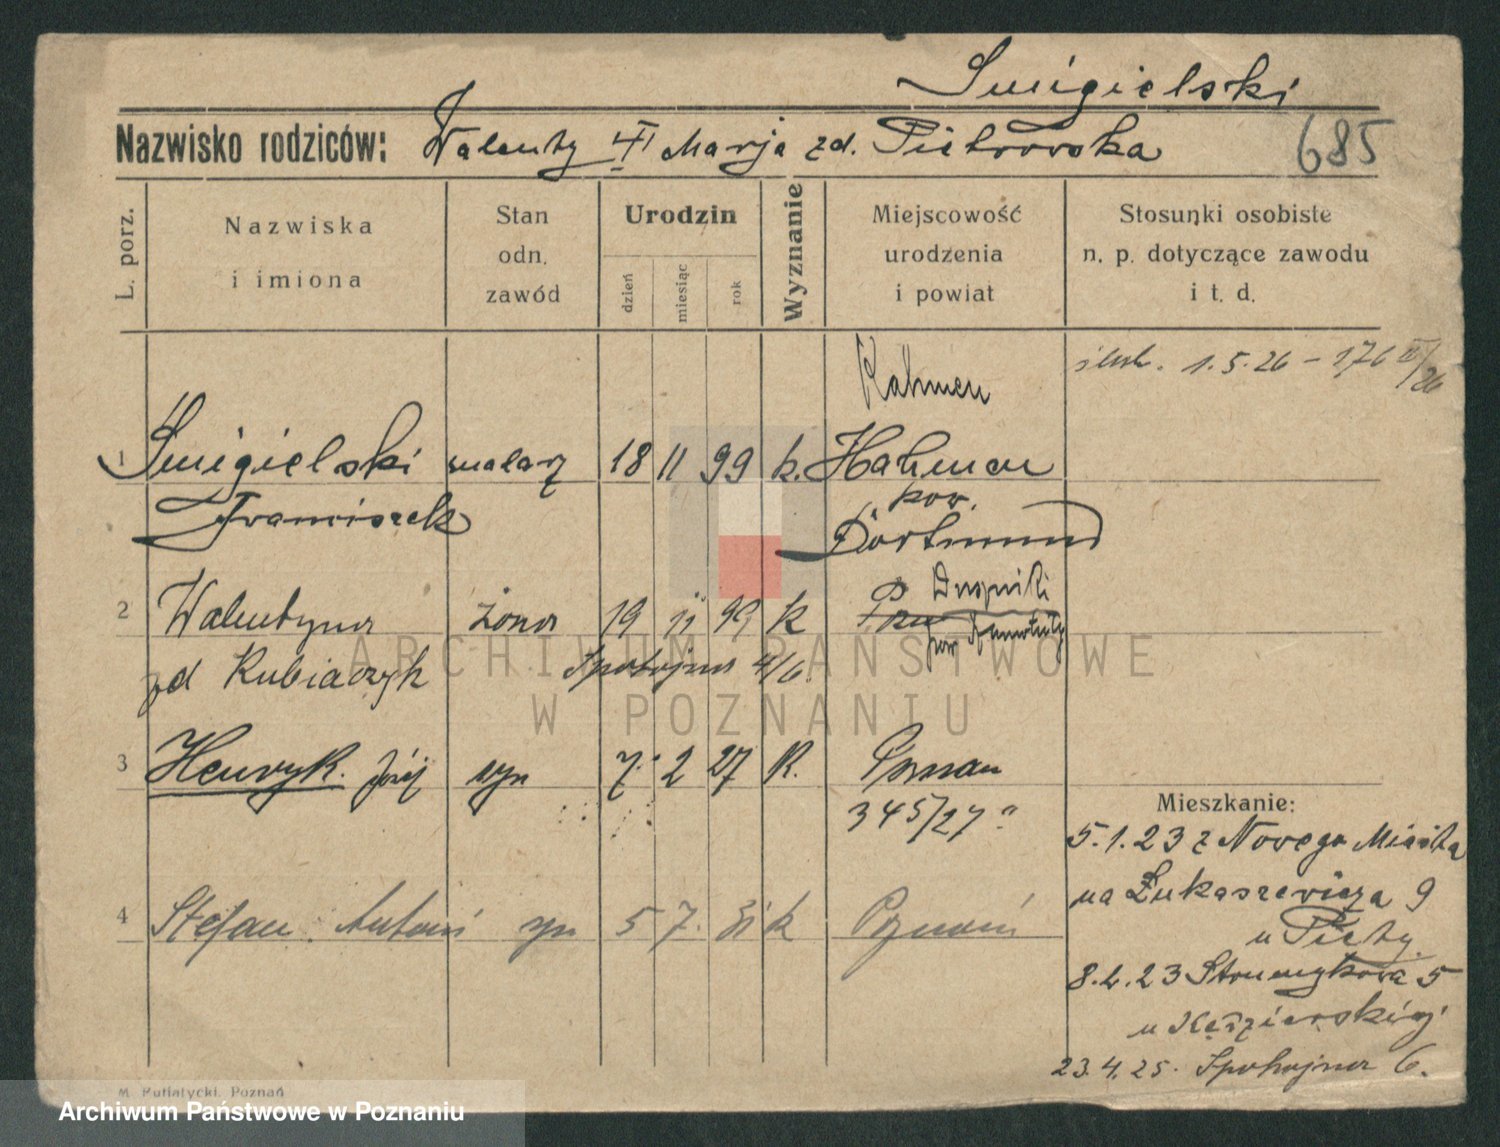 Smigielski
Nazwisko rodziców: Walenty i Marja zd. Pietrowska
685
L. porz.
Nazwiska i imiona
Stan odn. zawód
Urodzin
dzień miesiąc rok
Wyznanie
Miejscowość urodzenia i powiat
Stosunki osobiste n. p. dotyczące zawodu i t. d.
Rahmen
ślub. 1.5.26 - 176 II/26
1 Smigielski malarz 18 11 99 k. Hahmen
Franciszek pow. Dortmund
2 Walentyna żona 19 ii 99 k Duszniki
pow Szamotuły
zd Kubiaczyk Spokojna 4/6.
3 Henryk. Józef syn 7. 2 27 K. Poznan
345/27
Mieszkanie:
5.1.23 z Nowego Miasta
na Łukaszewicza 9
u Piety.
4 Stefan Antoni syn 5 7. 31 k Poznań
8.2.23 Strumykowa 5
u Kęszierskiej
23.4.25. Spokojna 6.
M. Putiatycki, Poznań
ARCHIWUM PAŃSTWOWE
W POZNANIU
Archiwum Państwowe w Poznaniu